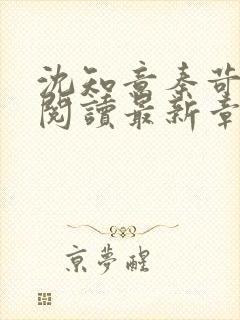 沈知意秦苛
閱讀最新章
京夢醒